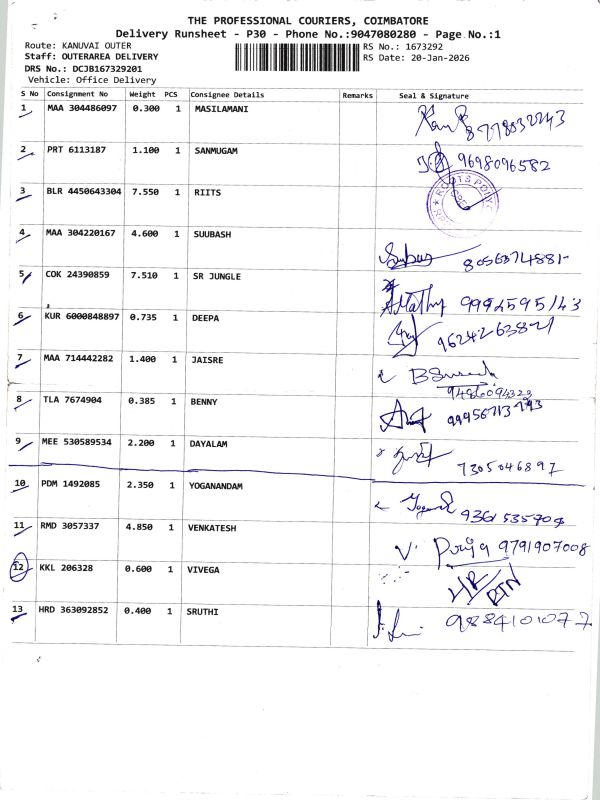 THE PROFESSIONAL COURIERS, COIMBATORE
Delivery Runsheet - P30 - Phone No.:9047080280 - Page No.:1
Route: KANUVAI OUTER
Staff: OUTERAREA DELIVERY
DRS No.: DCJB167329201
Vehicle: Office Delivery
RS No.: 1673292
RS Date: 20-Jan-2026
S No Consignment No Weight PCS Consignee Details Remarks Seal & Signature
1 MAA 304486097 0.300 1 MASILAMANI
2 PRT 6113187 1.100 1 SANMUGAM 9698096582
3 BLR 4450643304 7.550 1 RIITS
4 MAA 304220167 4.600 1 SUUBASH
5 COK 24390859 7.510 1 SR JUNGLE
6 KUR 6000848897 0.735 1 DEEPA
7 MAA 714442282 1.400 1 JAISRE
8 TLA 7674904 0.385 1 BENNY
9 MEE 530589534 2.200 1 DAYALAM 7305046897
10 PDM 1492085 2.350 1 YOGANANDAM
11 RMD 3057337 4.850 1 VENKATESH Priya 9791907008
12 KKL 206328 0.600 1 VIVEGA
13 HRD 363092852 0.400 1 SRUTHI 9884101077